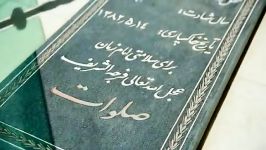 سال شهادت:
تاریخ خاکسپاری: ۱۳۸۲،۵،۱۴
برای سلامتی امام زمان
عجل الله تعالی فرجه الشریف
صلوات